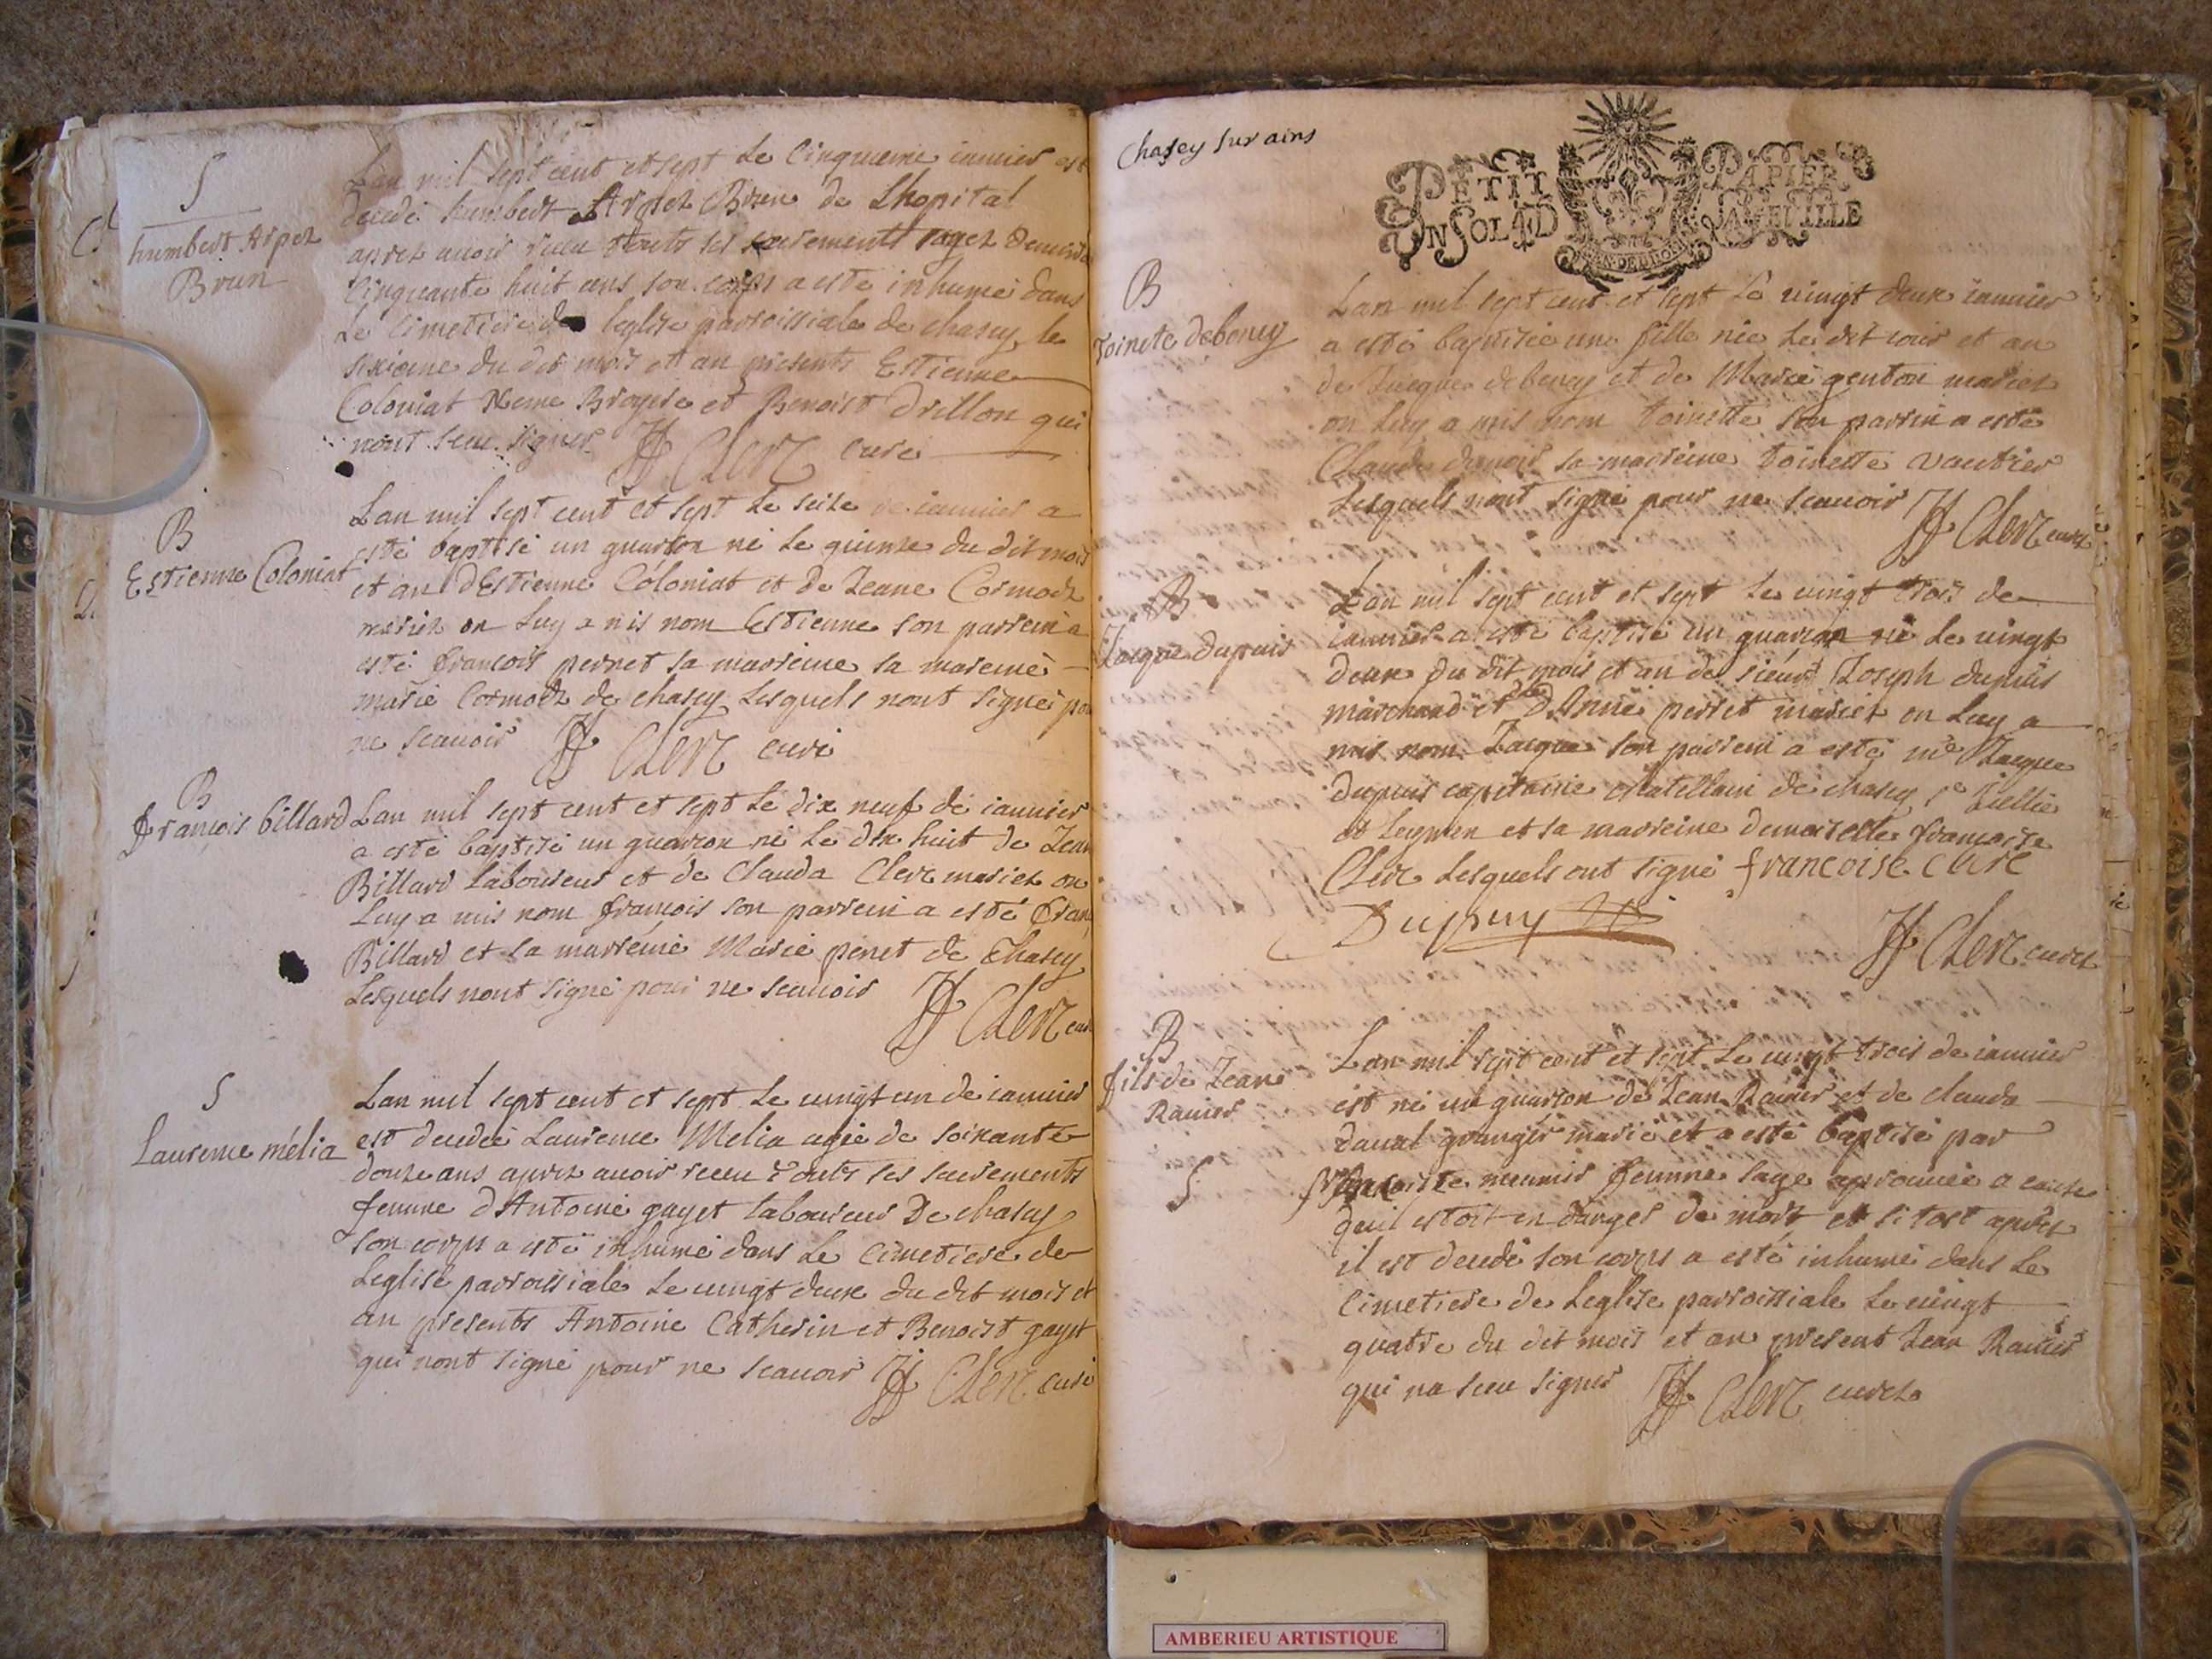 S
humbert Arpet
Brun
Lan mil sept cent et sept le cinquieme ianuier est
decedé humbert Arpet Brun de Lhopital
apret auoir receu touts ses sacrements aget denuiron
cinquante huit ans son corps a esté inhumé dans
le cimetiere de leglise parroissiale de chasey le
sixieme du dit mois et an presents Estienne
Coloniat Broyere et Benoist Drillon qui
nont sceu signer JF Clerc curé
B
Estienne Coloniat
Lan mil sept cent et sept le seize de ianuier a
esté baptisé un guarson né le quinze du dit mois
et an dEstienne Coloniat et de Jeane Cormoz
mariez on luy a mis nom Estienne son parrein a
esté francois pernet sa marreine sa mareine
marie Cormoz de chasey lesquels nont signé pour
ne scauoir JF Clerc curé
B
francois billard
Lan mil sept cent et sept le dix neuf de ianuier
a esté baptisé un guarcon né le dix huit de Jean
Billard laboureur et de Clauda Clerc mariez on
luy a mis nom francois son parrein a esté fran
Billard et sa marreine Marie penet de Chasey
lesquels nont signé pour ne scauoir JF Clerc curé
S
Laurence mélia
Lan mil sept cent et sept le uingt un de ianuier
est decedée Laurence Melia agée de soixante
douze ans apret auoir receu touts ses sacrements
femme dAntoine gayet laboureur De chasey
son corps a esté inhumé dans le cimetiere de
leglise parroissiale le uingt deux du dit mois et
an presents Antoine Catherin et Benoist gayet
qui nont signé pour ne scauoir JF Clerc curé
Chasey sur ains
PETIT PAPIER
UN SOL 4 D LA FEUILLE
B
Toinete deboney
Lan mil sept cent et sept le uingt deux ianuier
a esté baptisée une fille née le dit iour et an
de Jacques deboney et de Marie genton mariez
on luy a mis nom toinette son parrin a esté
Claude dunoir sa marreine toinette vautier
lesquels nont signé pour ne scauoir JF Clerc curez
B
Jacque dupuis
Lan mil sept cent et sept le uingt trois de
ianuier a esté baptisé un guarcon né le uingt
deux du dit mois et an de sieur Joseph dupuis
marchand et dAnne perret mariez on luy a
mis nom Jacque son parrein a esté me Jacque
dupuis capitaine chatellain de chasey
et leymen et sa marreine demoiselle francoise
Clerc lesquels ont signé francoise clerc
Dupuy
JF Clerc curez
B
fils de Jean
Rauier
S
Lan mil sept cent et sept le uingt trois de ianuier
est né un guarson de Jean Rauier et de clauda
daual granger marié et a esté baptisé par
francoise meunier femme sage aprouuée a cause
quil estoit en danger de mort et si tost apret
il est decedé son corps a esté inhumé dans le
cimetiere de leglise parroissiale le uingt
quatre du dit mois et an present Jean Rauier
qui na sceu signer JF Clerc curez
AMBERIEU ARTISTIQUE